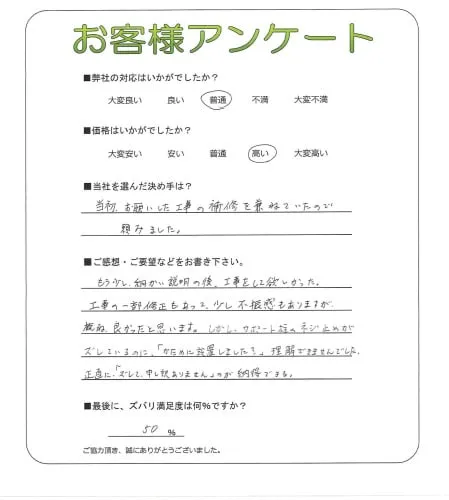 お客様アンケート
■弊社の対応はいかがでしたか?
大変良い 良い 普通 不満 大変不満
■価格はいかがでしたか?
大変安い 安い 普通 高い 大変高い
■当社を選んだ決め手は?
当初、お願いした工事の補修を兼ねていたので
頼みました。
■ご感想・ご要望などをお書き下さい。
もう少し、細かい説明の後、工事をして欲しかった。
工事の一部修正もあって、少し不信感もありますが、
概ね、良かったと思います。しかし、サポート板のネジ止めが
ズレているのに、「ために設置しました?」理解できませんでした。
正直に、「ズレて、申し訳ありません」のが納得できる。
■最後に、ズバリ満足度は何%ですか?
50 %
ご協力頂き、誠にありがとうございました。